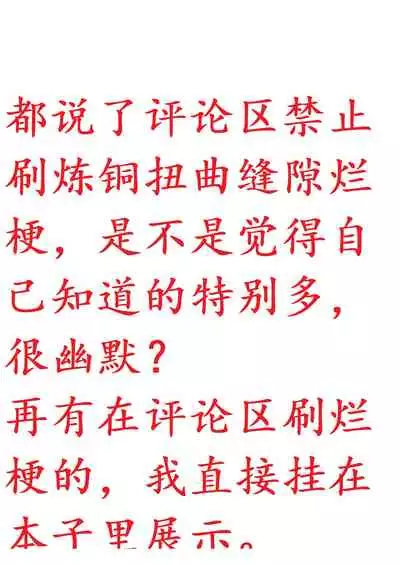 都说了评论区禁止
刷炼铜扭曲缝隙烂
梗，是不是觉得自
己知道的特别多，
很幽默？
再有在评论区刷烂
梗的，我直接挂在
本子里展示。